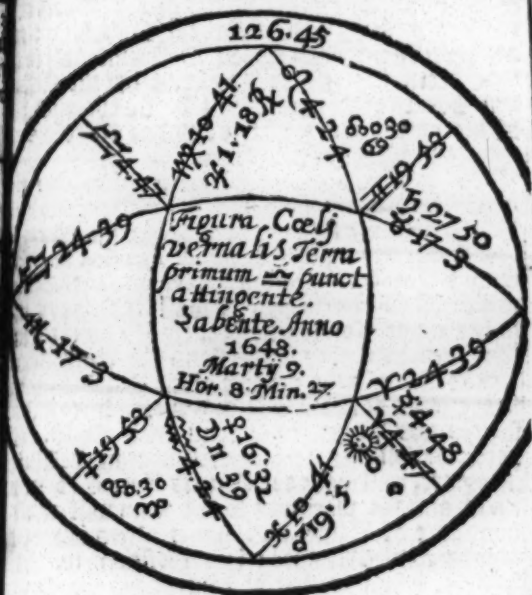 126.45
♍ 10 41
♃ 1.18 ℞
♌ 4 24
☊ 0 30
♋
♎ 4 47
♊ 19 33
♄ 27 50
♎ 24 39
♉ 17 3
Figura Cœlj
vernalis Terra
primum ♎ punct
attingente.
Labente Anno
1648.
Martÿ 9.
Hor. 8 Min. 27
♏ 17 3
♈ 24 39
♐ 19 33
☿ 4.48
♈ 4 47
☉ 0 0
☋ 0.30
♑
♒ 4.24
☽ 11 39
♀ 16.32
♓ 10 41
♂ 19.5